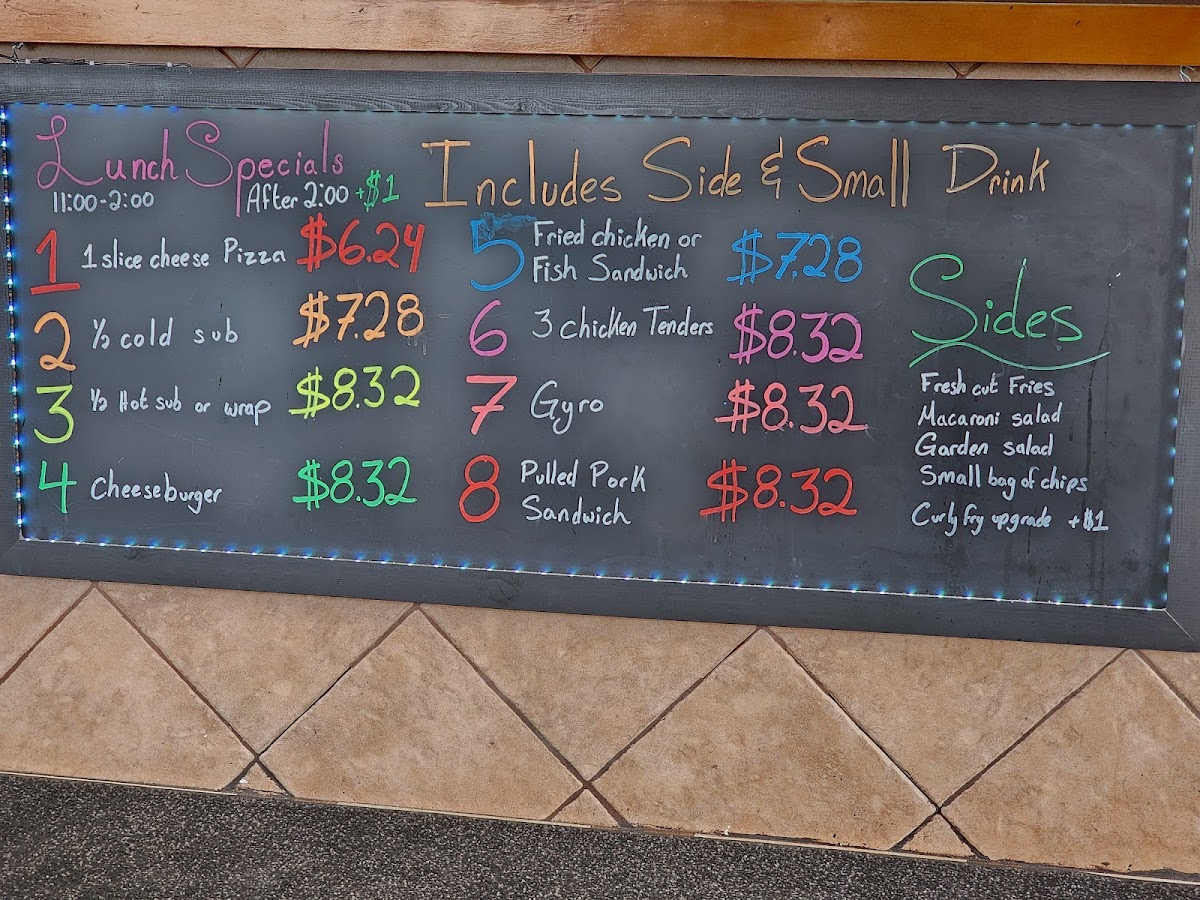 Lunch Specials
11:00-2:00 After 2:00 +$1
Includes Side & Small Drink
1 1 slice cheese Pizza $6.24
2 ½ cold sub $7.28
3 ½ Hot sub or wrap $8.32
4 Cheeseburger $8.32
5 Fried chicken or
Fish Sandwich $7.28
6 3 chicken Tenders $8.32
7 Gyro $8.32
8 Pulled Pork
Sandwich $8.32
Sides
Fresh cut Fries
Macaroni salad
Garden salad
Small bag of chips
Curly fry upgrade +$1